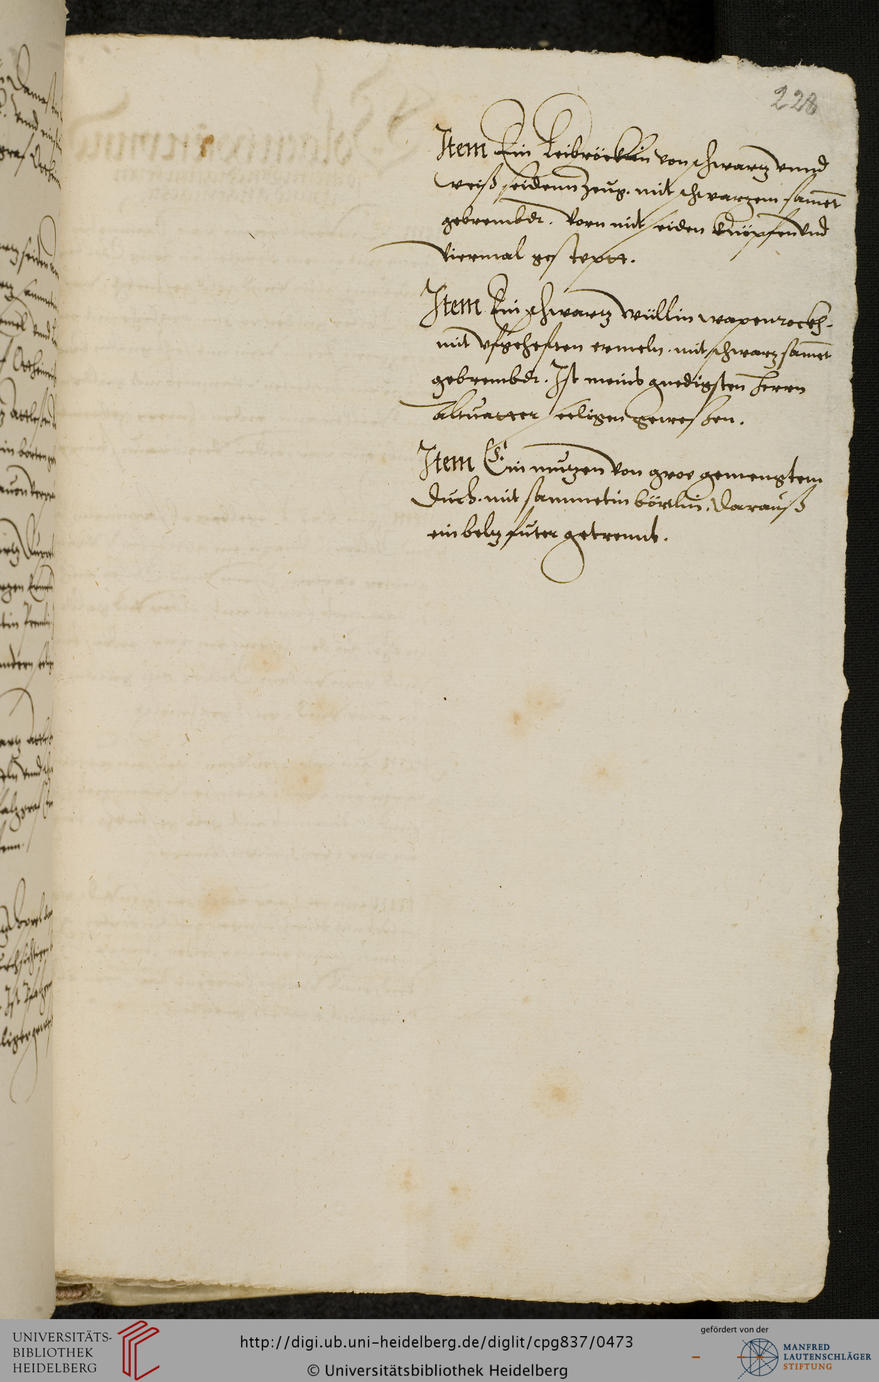 228
Item Ein Leibröcklin von schwartz vnnd
weiß seidenn Zeug. mit schwarzem samet
gebrembdt. vorn mit seiden Knöpfen vnd
viermal gesteppt.
Item Ein schwartz wüllin wapenrockh.
mit vfgeheften ermeln. mit schwarz samet
gebrembdt. Ist meins gnedigsten Herrn
altuatter seeligen gewessen.
Item Ein mutzen von groe gemengtem
Duch. mit sammetin börtlin. Darauß
ein beltz futer getrennt.
UNIVERSITÄTS-
BIBLIOTHEK
HEIDELBERG
http://digi.ub.uni-heidelberg.de/diglit/cpg837/0473
© Universitätsbibliothek Heidelberg
gefördert von der
MANFRED
LAUTENSCHLÄGER
STIFTUNG